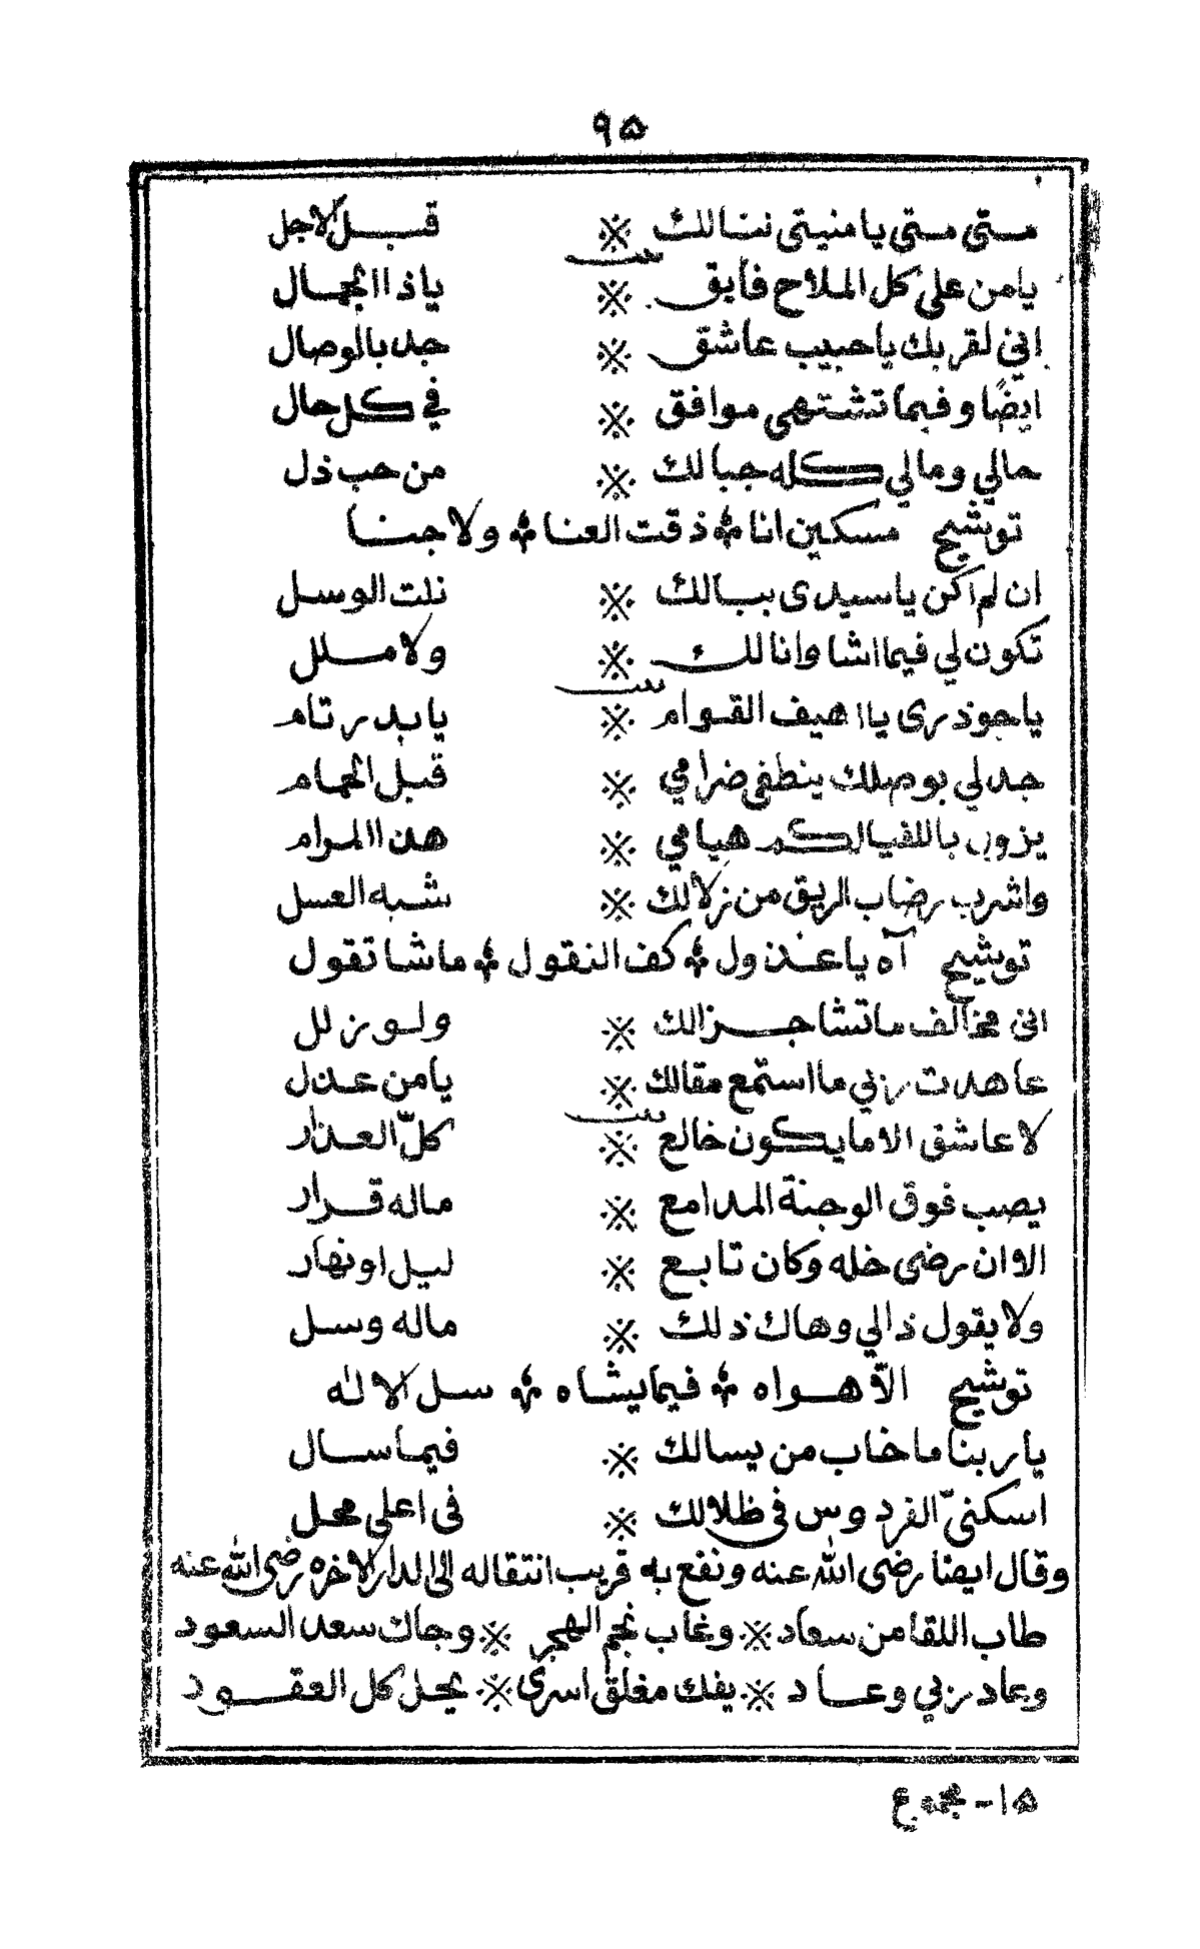 ٩٥
متى متى يا منيتى ننالك ※ قبل الاجل
بيت
يا من على كل الملاح فايق ※ يا ذا الجمال
اني لقربك يا حبيب عاشق ※ جد بالوصال
ايضًا وفيما تشتهى موافق ※ في كل حال
حالي ومالي كله جبالك ※ من حب ذل
توشيح مسكين انا ذقت العنا ولا جنا
ان لم اكن يا سيدى ببالك ※ نلت الوسل
تكون لي فيما اشا وانالك ※ ولا ملل
بيت
يا جوذرى يا اهيف القوام ※ يا بدر تام
جد لي بوصلك ينطفى ضرامي ※ قبل الحمام
يزول باللقيا لكم هيامي ※ هذا المرام
واشرب رضاب الريق من زلالك ※ شبه العسل
توشيح آه يا عذول كف النقول ما شا تقول
انى مخالف ما تشا جزالك ※ ولو زلل
عاهدت ربي ما استمع مقالك ※ يا من عذل
بيت
لا عاشق الا ما يكون خالع ※ كلّ العذار
يصب فوق الوجنة المدامع ※ ماله قرار
الا وان رضى خله وكان تابع ※ ليل او نهار
ولا يقول ذالي وهاك ذلك ※ ماله وسل
توشيح الا هواه فيما يشاه سل الاله
يا ربنا ما خاب من يسالك ※ فيما سال
اسكنيّ الفردوس فى ظلالك ※ فى اعلى محل
وقال ايضا رضى الله عنه ونفع به قريب انتقاله الى الدار الاخره رضى الله عنه
طاب اللقا من سعاد ※ وغاب نجم الهجر ※ وجاك سعد السعود
وعاد ربي وعاد ※ يفك مغلق اسرى ※ يحل كل العقود
١٥ - مجموع